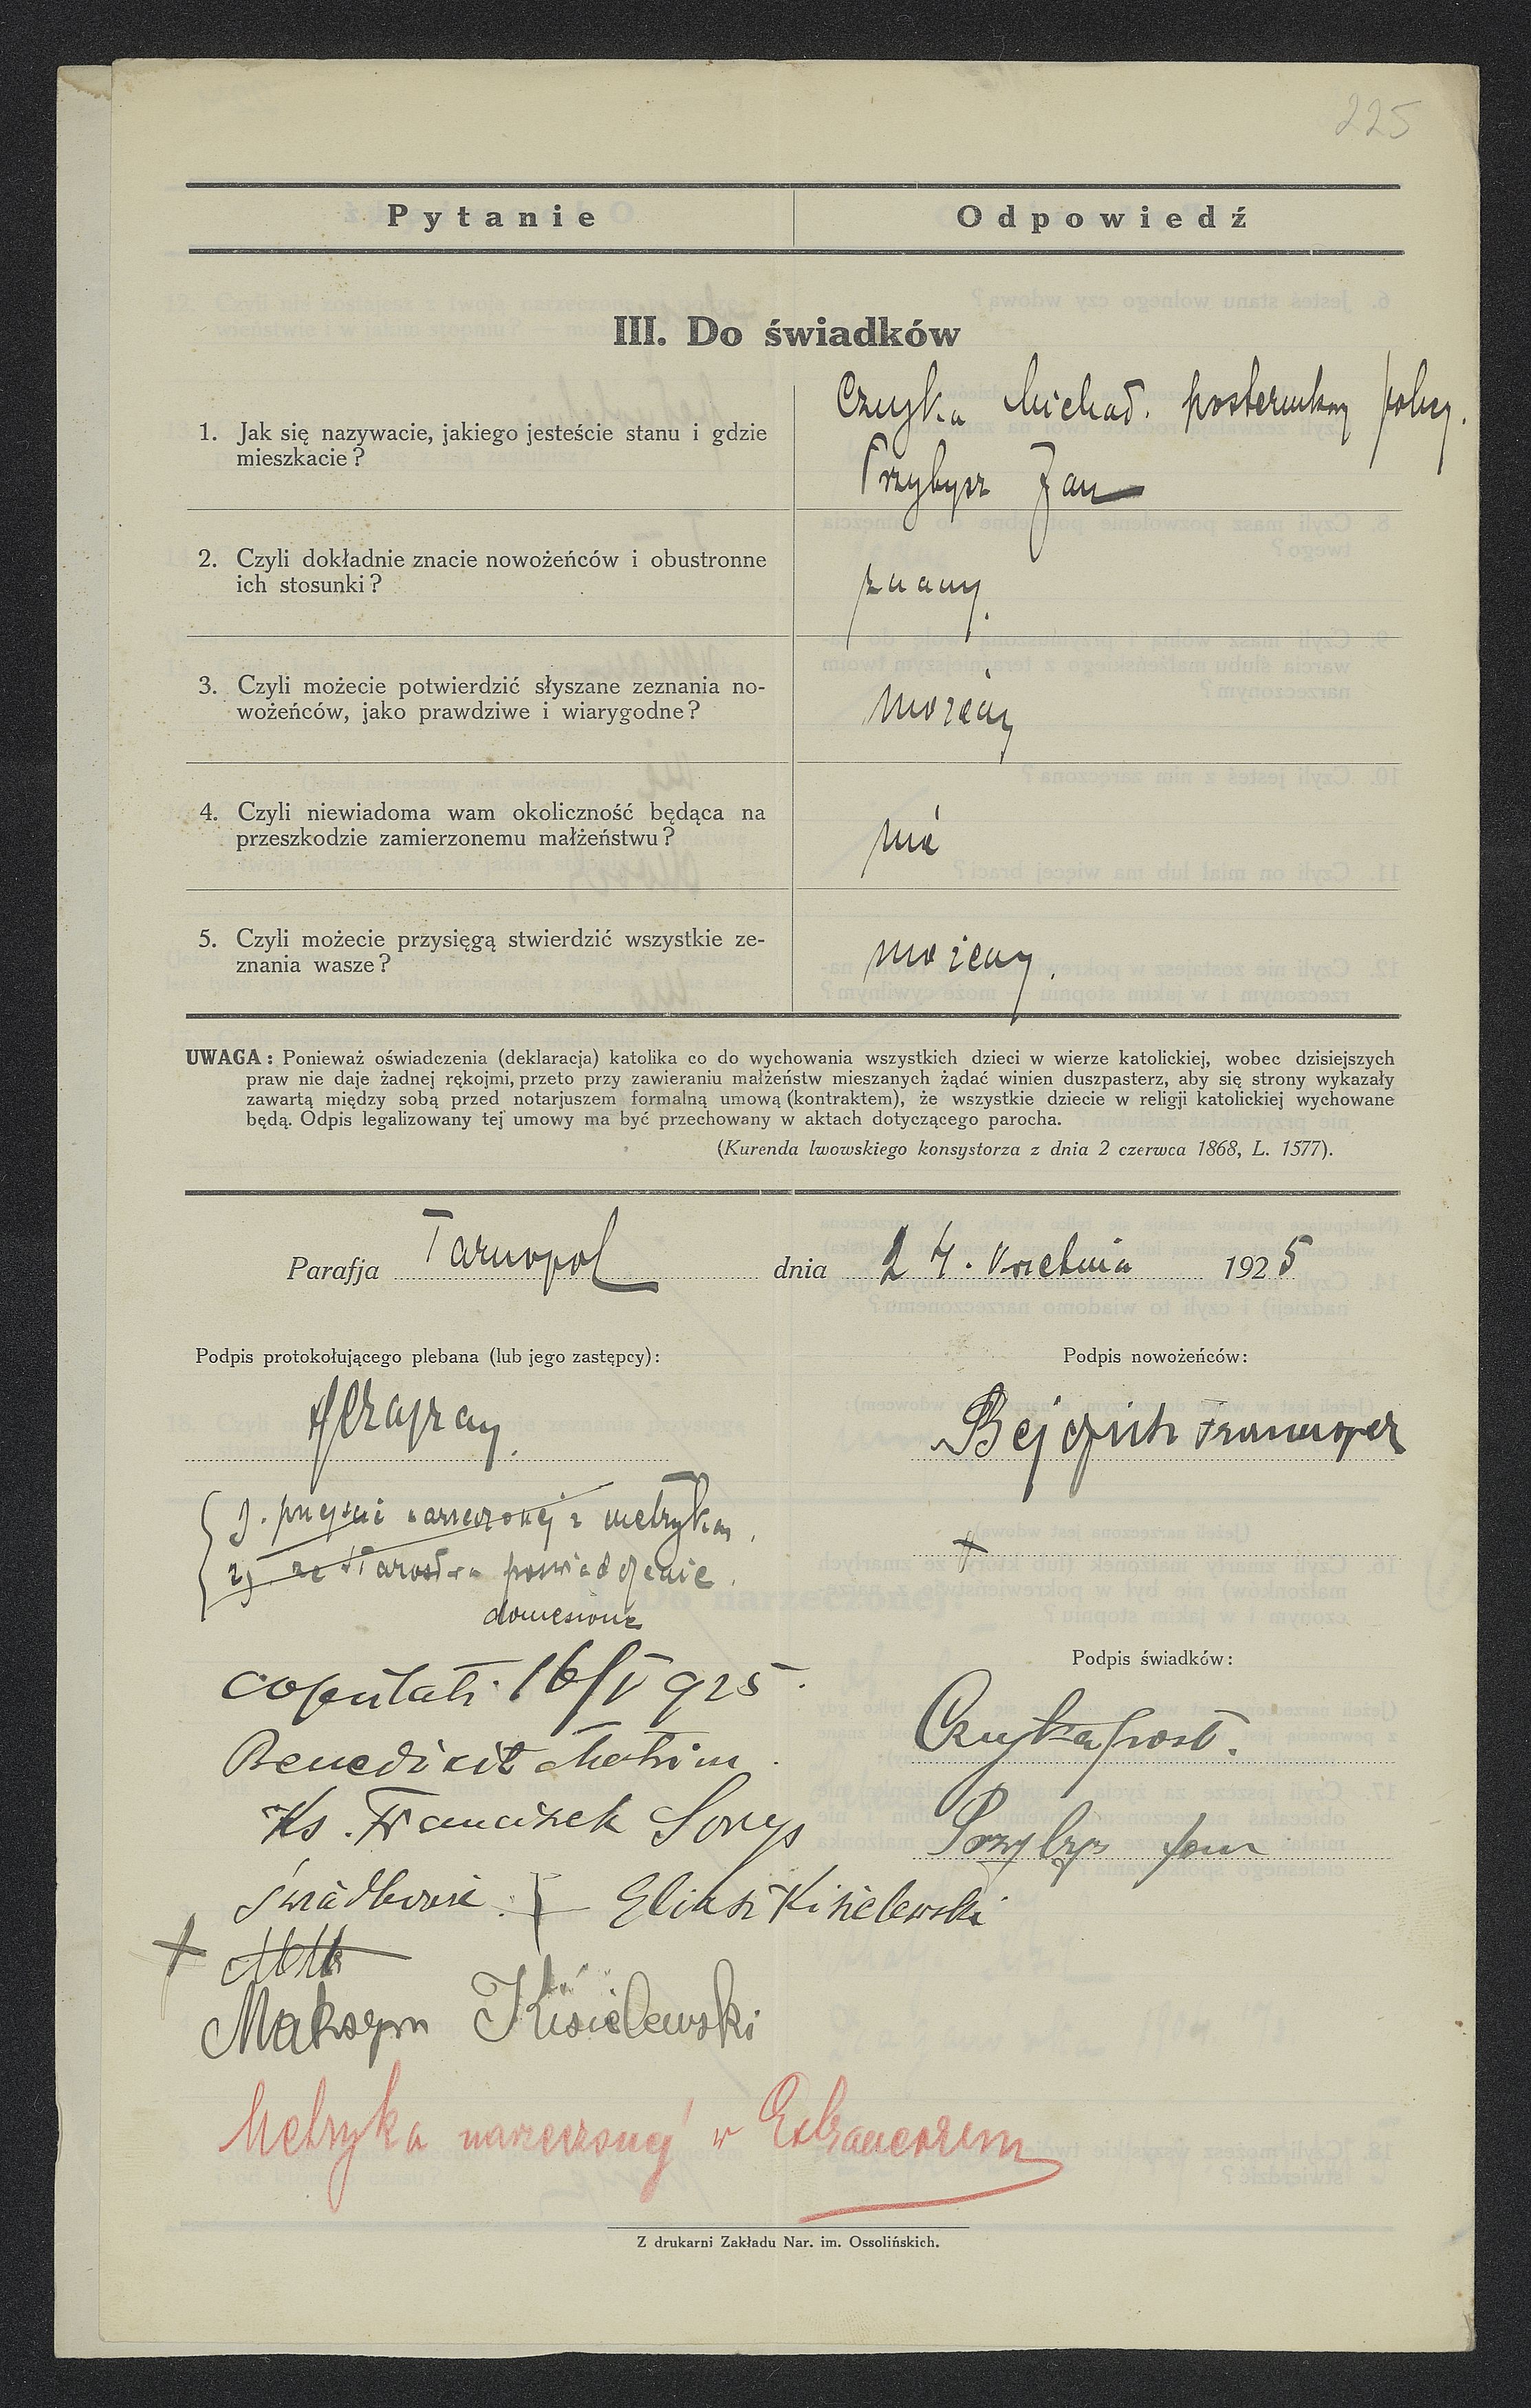 225
Pytanie
Odpowiedź
III. Do świadków
1. Jak się nazywacie, jakiego jesteście stanu i gdzie
mieszkacie?
Czuyka Michał. posterunkowy policy.
Przybysz Jan
2. Czyli dokładnie znacie nowożeńców i obustronne
ich stosunki?
znamy.
3. Czyli możecie potwierdzić słyszane zeznania no-
wożeńców, jako prawdziwe i wiarygodne?
możemy
4. Czyli niewiadoma wam okoliczność będąca na
przeszkodzie zamierzonemu małżeństwu?
nie
5. Czyli możecie przysięgą stwierdzić wszystkie ze-
znania wasze?
możemy.
UWAGA: Ponieważ oświadczenia (deklaracja) katolika co do wychowania wszystkich dzieci w wierze katolickiej, wobec dzisiejszych
praw nie daje żadnej rękojmi, przeto przy zawieraniu małżeństw mieszanych żądać winien duszpasterz, aby się strony wykazały
zawartą między sobą przed notarjuszem formalną umową (kontraktem), że wszystkie dziecie w religji katolickiej wychowane
będą. Odpis legalizowany tej umowy ma być przechowany w aktach dotyczącego parocha.
(Kurenda lwowskiego konsystorza z dnia 2 czerwca 1868, L. 1577).
Parafja Tarnopol dnia 24. kwietnia 1925
Podpis protokołującego plebana (lub jego zastępcy):
Podpis nowożeńców:
narzeczonej z metryką.
2) ze Starostwa poświadczenie.
doniesione
+
Podpis świadków:
copulati 16/V 925.
Benedixit Matrim.
Ks. Franciszek
Czuyka post.
Przybysz Jan
świadkowie { Eliasz Kisielewski
+
Maksym Kisielewski
Metryka narzeczonej w
Z drukarni Zakładu Nar. im. Ossolińskich.